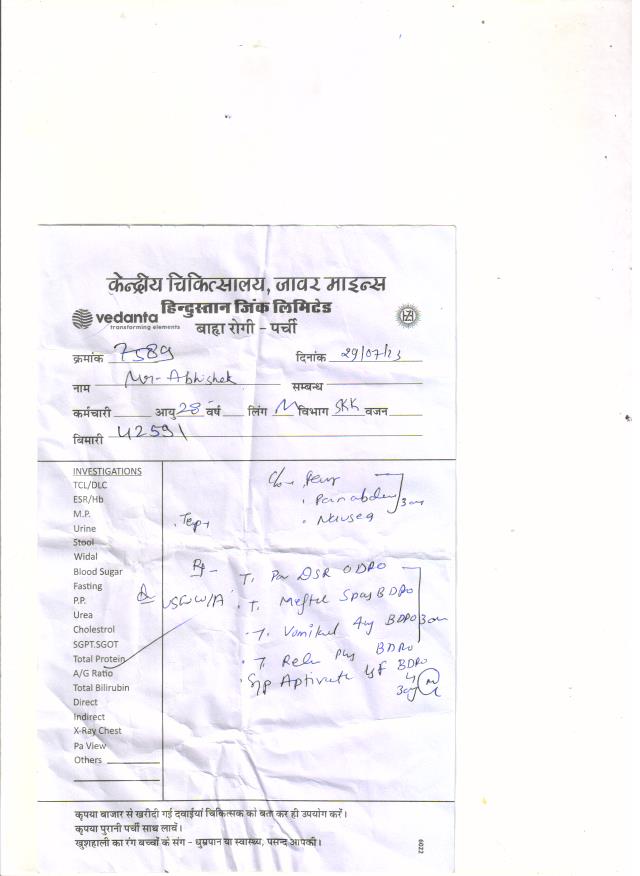 केन्द्रीय चिकित्सालय, जावर माइन्स
हिन्दुस्तान जिंक लिमिटेड
vedanta
transforming elements
बाह्य रोगी - पर्ची
क्रमांक 7589 दिनांक 29/07/23
नाम Mr- Abhishek सम्बन्ध
कर्मचारी आयु 28 वर्ष लिंग M विभाग SKK वजन
बिमारी 42591
INVESTIGATIONS
TCL/DLC
ESR/Hb
M.P.
Urine
Stool
Widal
Blood Sugar
Fasting
P.P.
Urea
Cholestrol
SGPT.SGOT
Total Protein
A/G Ratio
Total Bilirubin
Direct
Indirect
X-Ray Chest
Pa View
Others
c/o -
Pain abdomen
Nausea
Rx -
T. Pan DSR ODPO
USG W/A
T. Meftal Spas BDPO
T. Vomikind BDPO
T. BDPO
Syp Aptivate BDPO
कृपया बाजार से खरीदी गई दवाईयां चिकित्सक को बता कर ही उपयोग करें।
कृपया पुरानी पर्ची साथ लावें।
खुशहाली का रंग बच्चों के संग - धुम्रपान या स्वास्थ्य, पसन्द आपकी।
6022